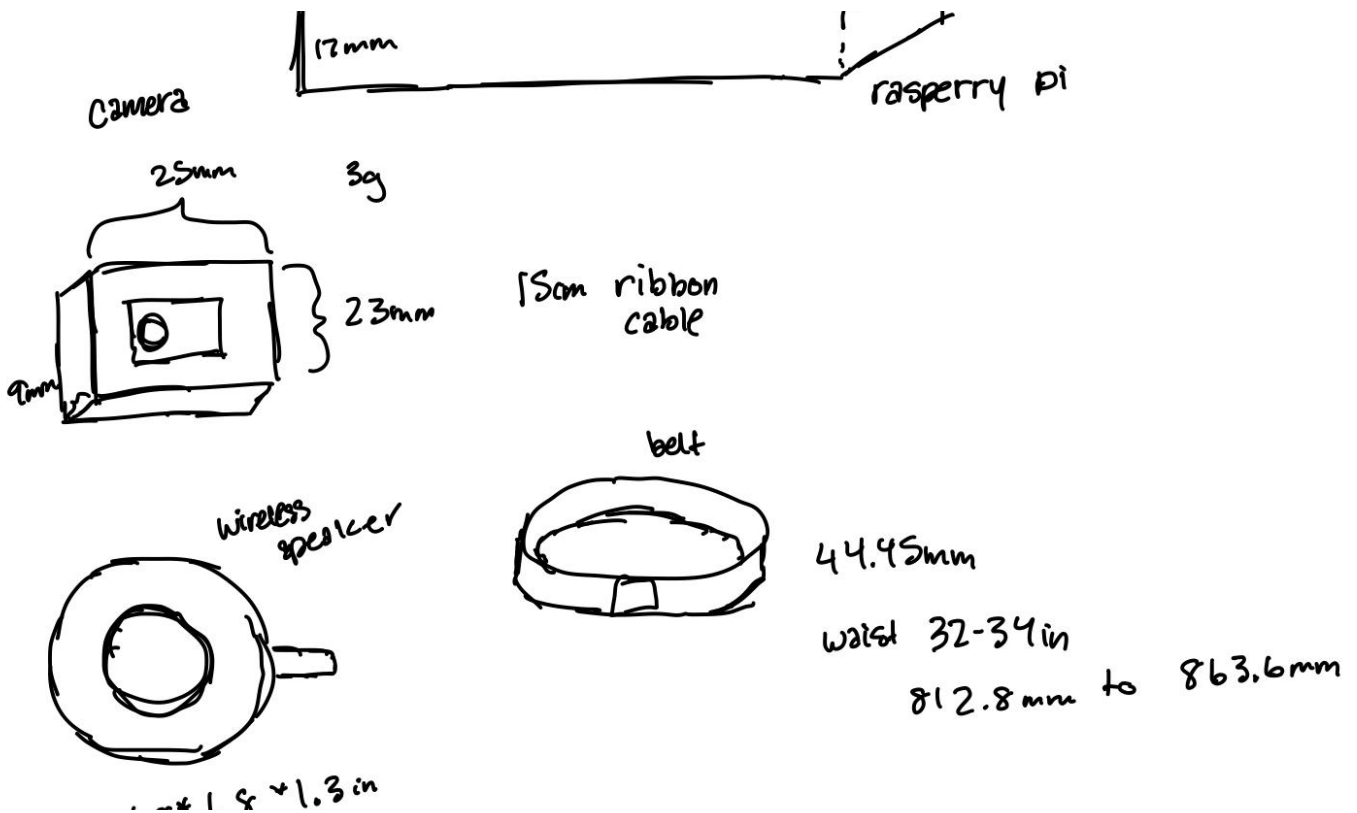 17mm
rasperry pi
camera
25mm
3g
23mm
9mm
15cm ribbon
cable
belt
wireless
speaker
44.45mm
waist 32-34in
812.8mm to 863.6mm
*1.8*1.3in